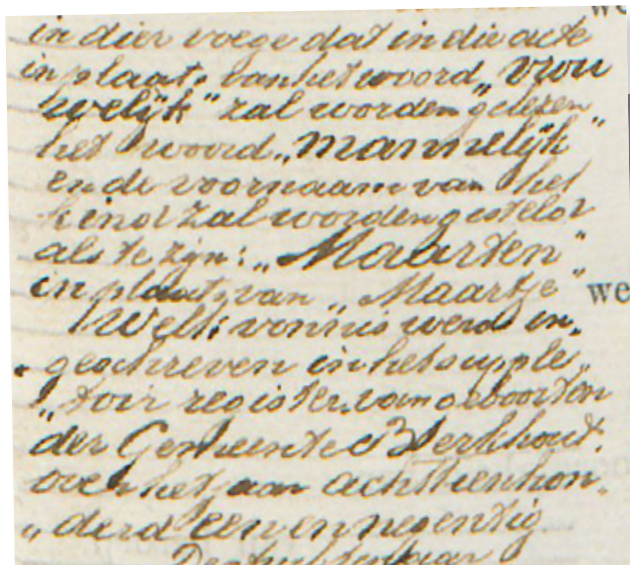 we
in dier voege dat in die acte
in plaats van het woord „vrou
welijk" zal worden gelezen
het woord „mannelijk"
en de voornaam van het
kind zal worden gesteld
als te zijn: „Maarten"
in plaats van „Maartje"
we
Welk vonnis werd in„
„geschreven in het supple„
„toir register van geboorten
der Gemeente Berkhout
over het jaar achttienhon„
„derd een en negentig